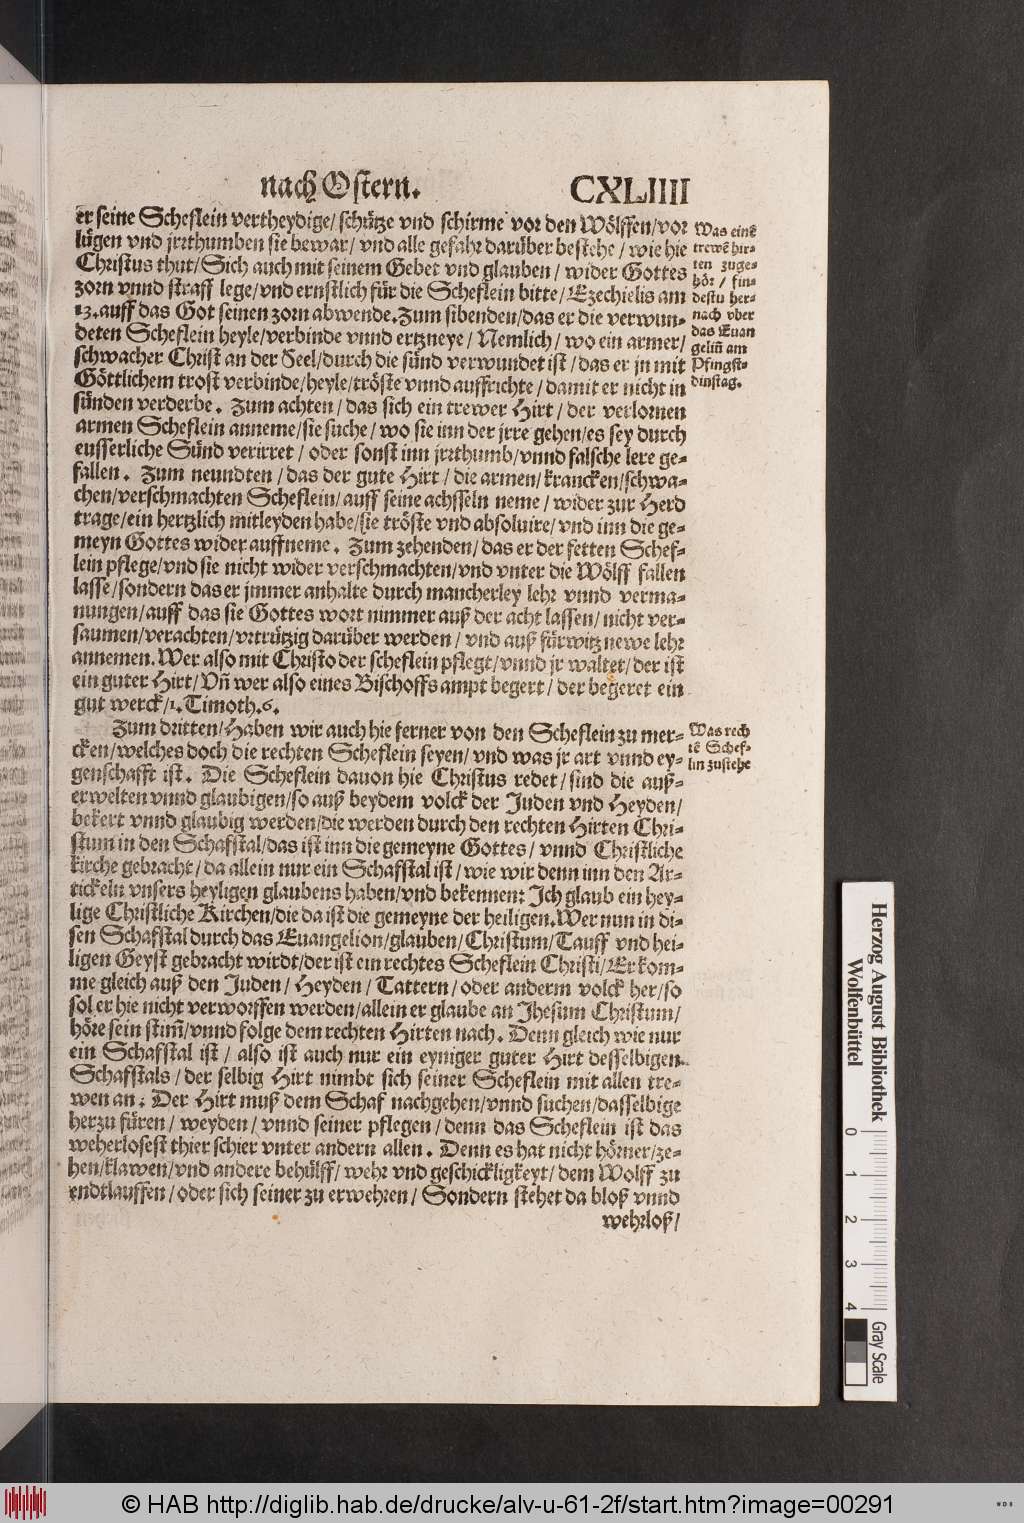 nach Ostern. CXLIIII
er seine Scheflein vertheydige/ schütze vnd schirme vor den Wölffen/ vor
lügen vnd jrrthumben sie bewar/ vnd alle gefahr darüber bestehe/ wie hie
Christus thut/ Sich auch mit seinem Gebet vnd glauben/ wider Gottes
zorn vnnd straff lege/ vnd ernstlich für die Scheflein bitte/ Ezechielis am
13. auff das Got seinen zorn abwende. Zum sibenden/ das er die verwun-
deten Scheflein heyle/ verbinde vnnd ertzneye/ Nemlich/ wo ein armer/
schwacher Christ an der Seel/ durch die sünd verwundet ist/ das er jn mit
Göttlichem trost verbinde/ heyle/ tröste vnnd auffrichte/ damit er nicht in
sünden verderbe. Zum achten/ das sich ein trewer Hirt/ der verlornen
armen Scheflein anneme/ sie suche/ wo sie inn der jrre gehen/ es sey durch
eusserliche Sünd verirret/ oder sonst inn jrrthumb/ vnnd falsche lere ge-
fallen. Zum neundten/ das der gute Hirt/ die armen/ krancken/ schwa-
chen/ verschmachten Scheflein/ auff seine achsseln neme/ wider zur Herd
trage/ ein hertzlich mitleyden habe/ sie tröste vnd absoluire/ vnd inn die ge-
meyn Gottes wider auffneme. Zum zehenden/ das er der fetten Schef-
lein pflege/ vnd sie nicht wider verschmachten/ vnd vnter die Wölff fallen
lasse/ sondern das er jmmer anhalte durch mancherley lehr vnnd verma-
nungen/ auff das sie Gottes wort nimmer auß der acht lassen/ nicht ver-
saumen/ verachten/ vrtrützig darüber werden/ vnd auß fürwitz newe lehr
annemen. Wer also mit Christo der scheflein pflegt/ vnnd jr waltet/ der ist
ein guter Hirt/ Vn̄ wer also eines Bischoffs ampt begert/ der begeret ein
gut werck/ 1. Timoth. 6.
Was einē
trewē hir-
ten zuge-
hör/ fin-
destu her-
nach vber
das Euan
geliū am
Pfingst-
dinstag.
Zum dritten/ Haben wir auch hie ferner von den Scheflein zu mer-
cken/ welches doch die rechten Scheflein seyen/ vnd was jr art vnnd ey-
genschafft ist. Die Scheflein dauon hie Christus redet/ sind die auß-
erwelten vnnd glaubigen/ so auß beydem volck der Juden vnd Heyden/
bekert vnnd glaubig werden/ die werden durch den rechten Hirten Chri-
stum in den Schafstal/ das ist inn die gemeyne Gottes/ vnnd Christliche
kirche gebracht/ da allein nur ein Schafstal ist/ wie wir denn inn den Ar-
tickeln vnsers heyligen glaubens haben/ vnd bekennen: Ich glaub ein hey-
lige Christliche Kirchen/ die da ist die gemeyne der heiligen. Wer nun in di-
sen Schafstal durch das Euangelion/ glauben/ Christum/ Tauff vnd hei-
ligen Geyst gebracht wirdt/ der ist ein rechtes Scheflein Christi/ Er kom-
me gleich auß den Juden/ Heyden/ Tattern/ oder anderm volck her/ so
sol er hie nicht verworffen werden/ allein er glaube an Jhesum Christum/
höre sein stim̄/ vnnd folge dem rechten Hirten nach. Denn gleich wie nur
ein Schafstal ist/ also ist auch nur ein eyniger guter Hirt desselbigen
Schafstals/ der selbig Hirt nimbt sich seiner Scheflein mit allen tre-
wen an: Der Hirt muß dem Schaf nachgehen/ vnnd suchen/ dasselbige
herzu füren/ weyden/ vnnd seiner pflegen/ denn das Scheflein ist das
weherlosest thier schier vnter andern allen. Denn es hat nicht hörner/ ze-
hen/ klawen/ vnd andere behülff/ wehr vnd geschickligkeyt/ dem Wolff zu
endtlauffen/ oder sich seiner zu erwehren/ Sondern stehet da bloß vnnd
wehrloß/
Was rech
tē Schef-
lin zustehe
Herzog August Bibliothek
Wolfenbüttel
0 1 2 3 4
Gray Scale
© HAB http://diglib.hab.de/drucke/alv-u-61-2f/start.htm?image=00291